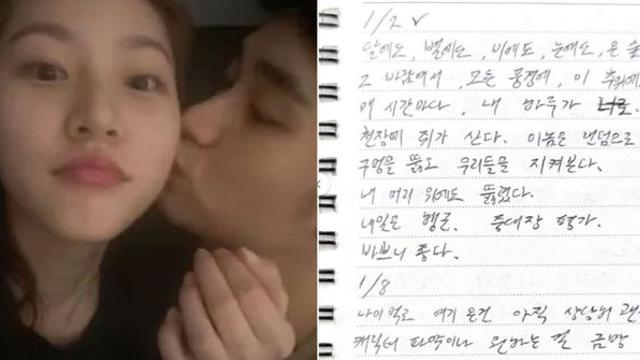 1/2
달에도, 별에도, 비에도, 눈에도, 온
그 바람에서, 모든 풍경에, 이
매 시간마다, 내 하루가
천장에 쥐가 산다. 이놈은 랜덤으로
구멍을 뚫고 우리들을 지켜본다.
내 머리 위에도 뚫렸다.
내일은 행군. 중대장 평가.
바쁘니 좋다.
1/8
나이 먹고 여기 온건 아직 상상의
캐릭터 파악이나 원하는 걸 금방